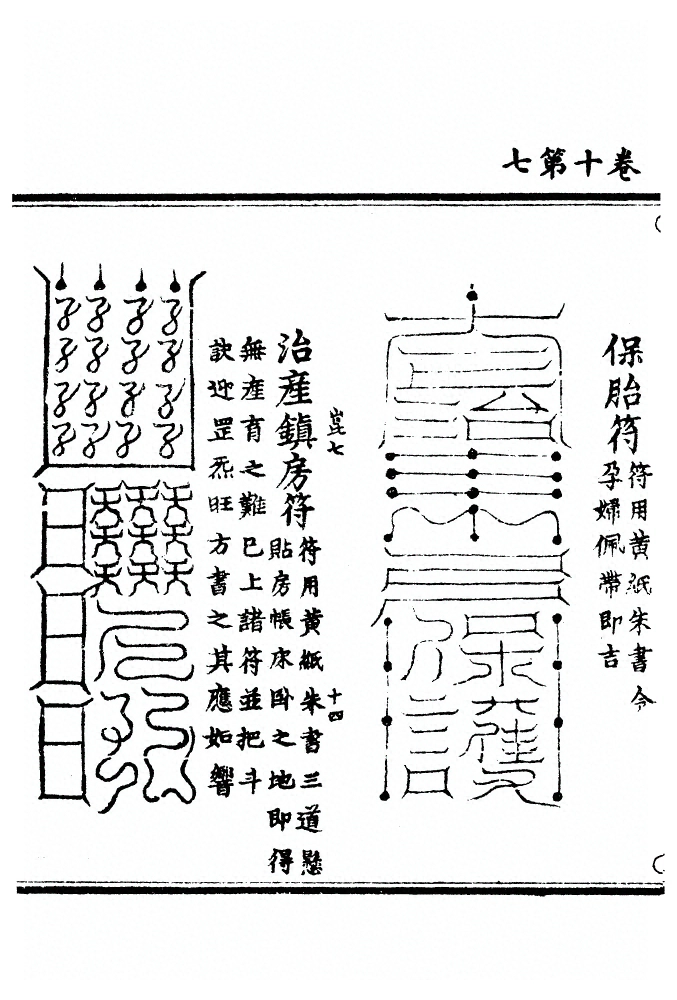 卷十第七
保胎符
符用黃紙朱書令
孕婦佩帶即吉
崑七
十四
治產鎮房符
符用黃紙朱書三道懸
貼房帳床卧之地即得
無產育之難已上諸符並把斗
訣迎罡炁旺方書之其應如響